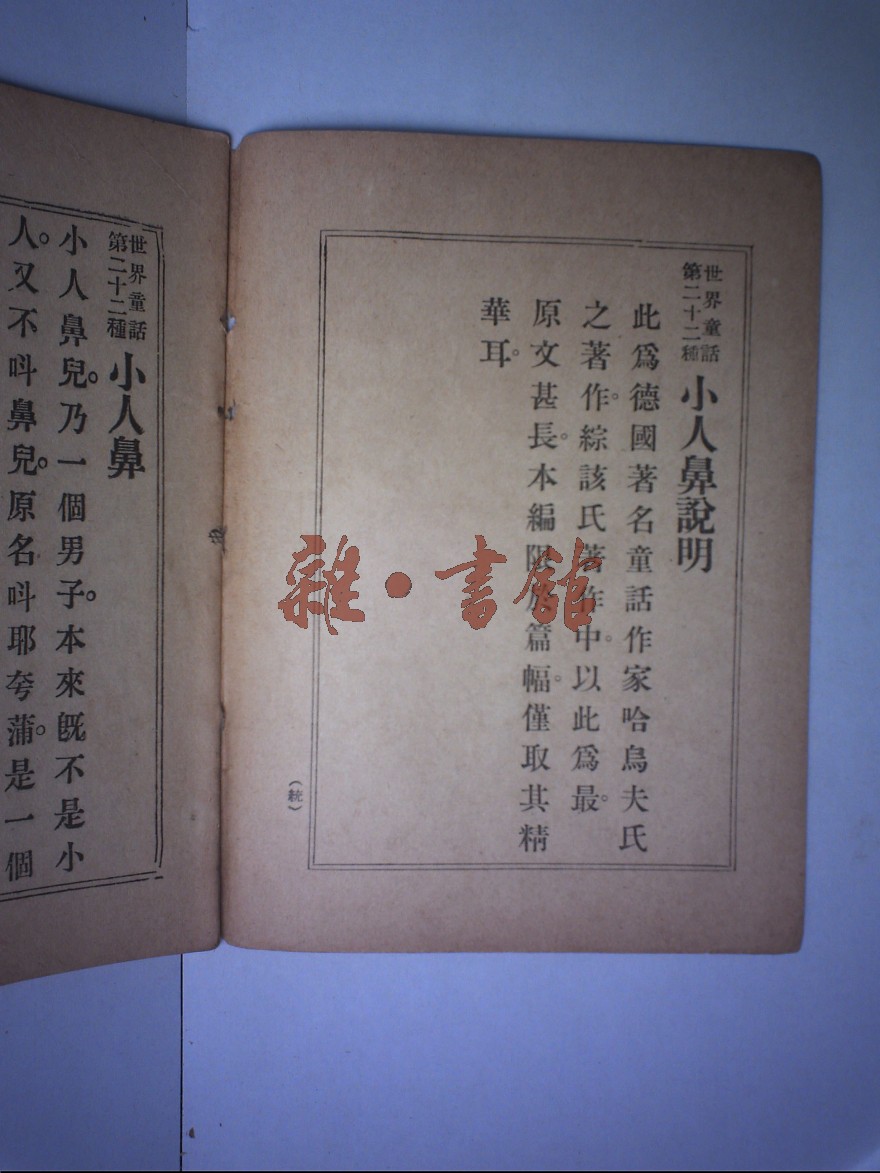 世界童話
第二十二種
小人鼻說明
此爲德國著名童話作家哈烏夫氏
之著作。綜該氏著作中。以此爲最。
原文甚長。本編限於篇幅。僅取其精
華耳。
(統)
世界童話
第二十二種
小人鼻
小人鼻兒。乃一個男子。本來旣不是小
人。又不呌鼻兒。原名呌耶夸蒲。是一個
雜·書館